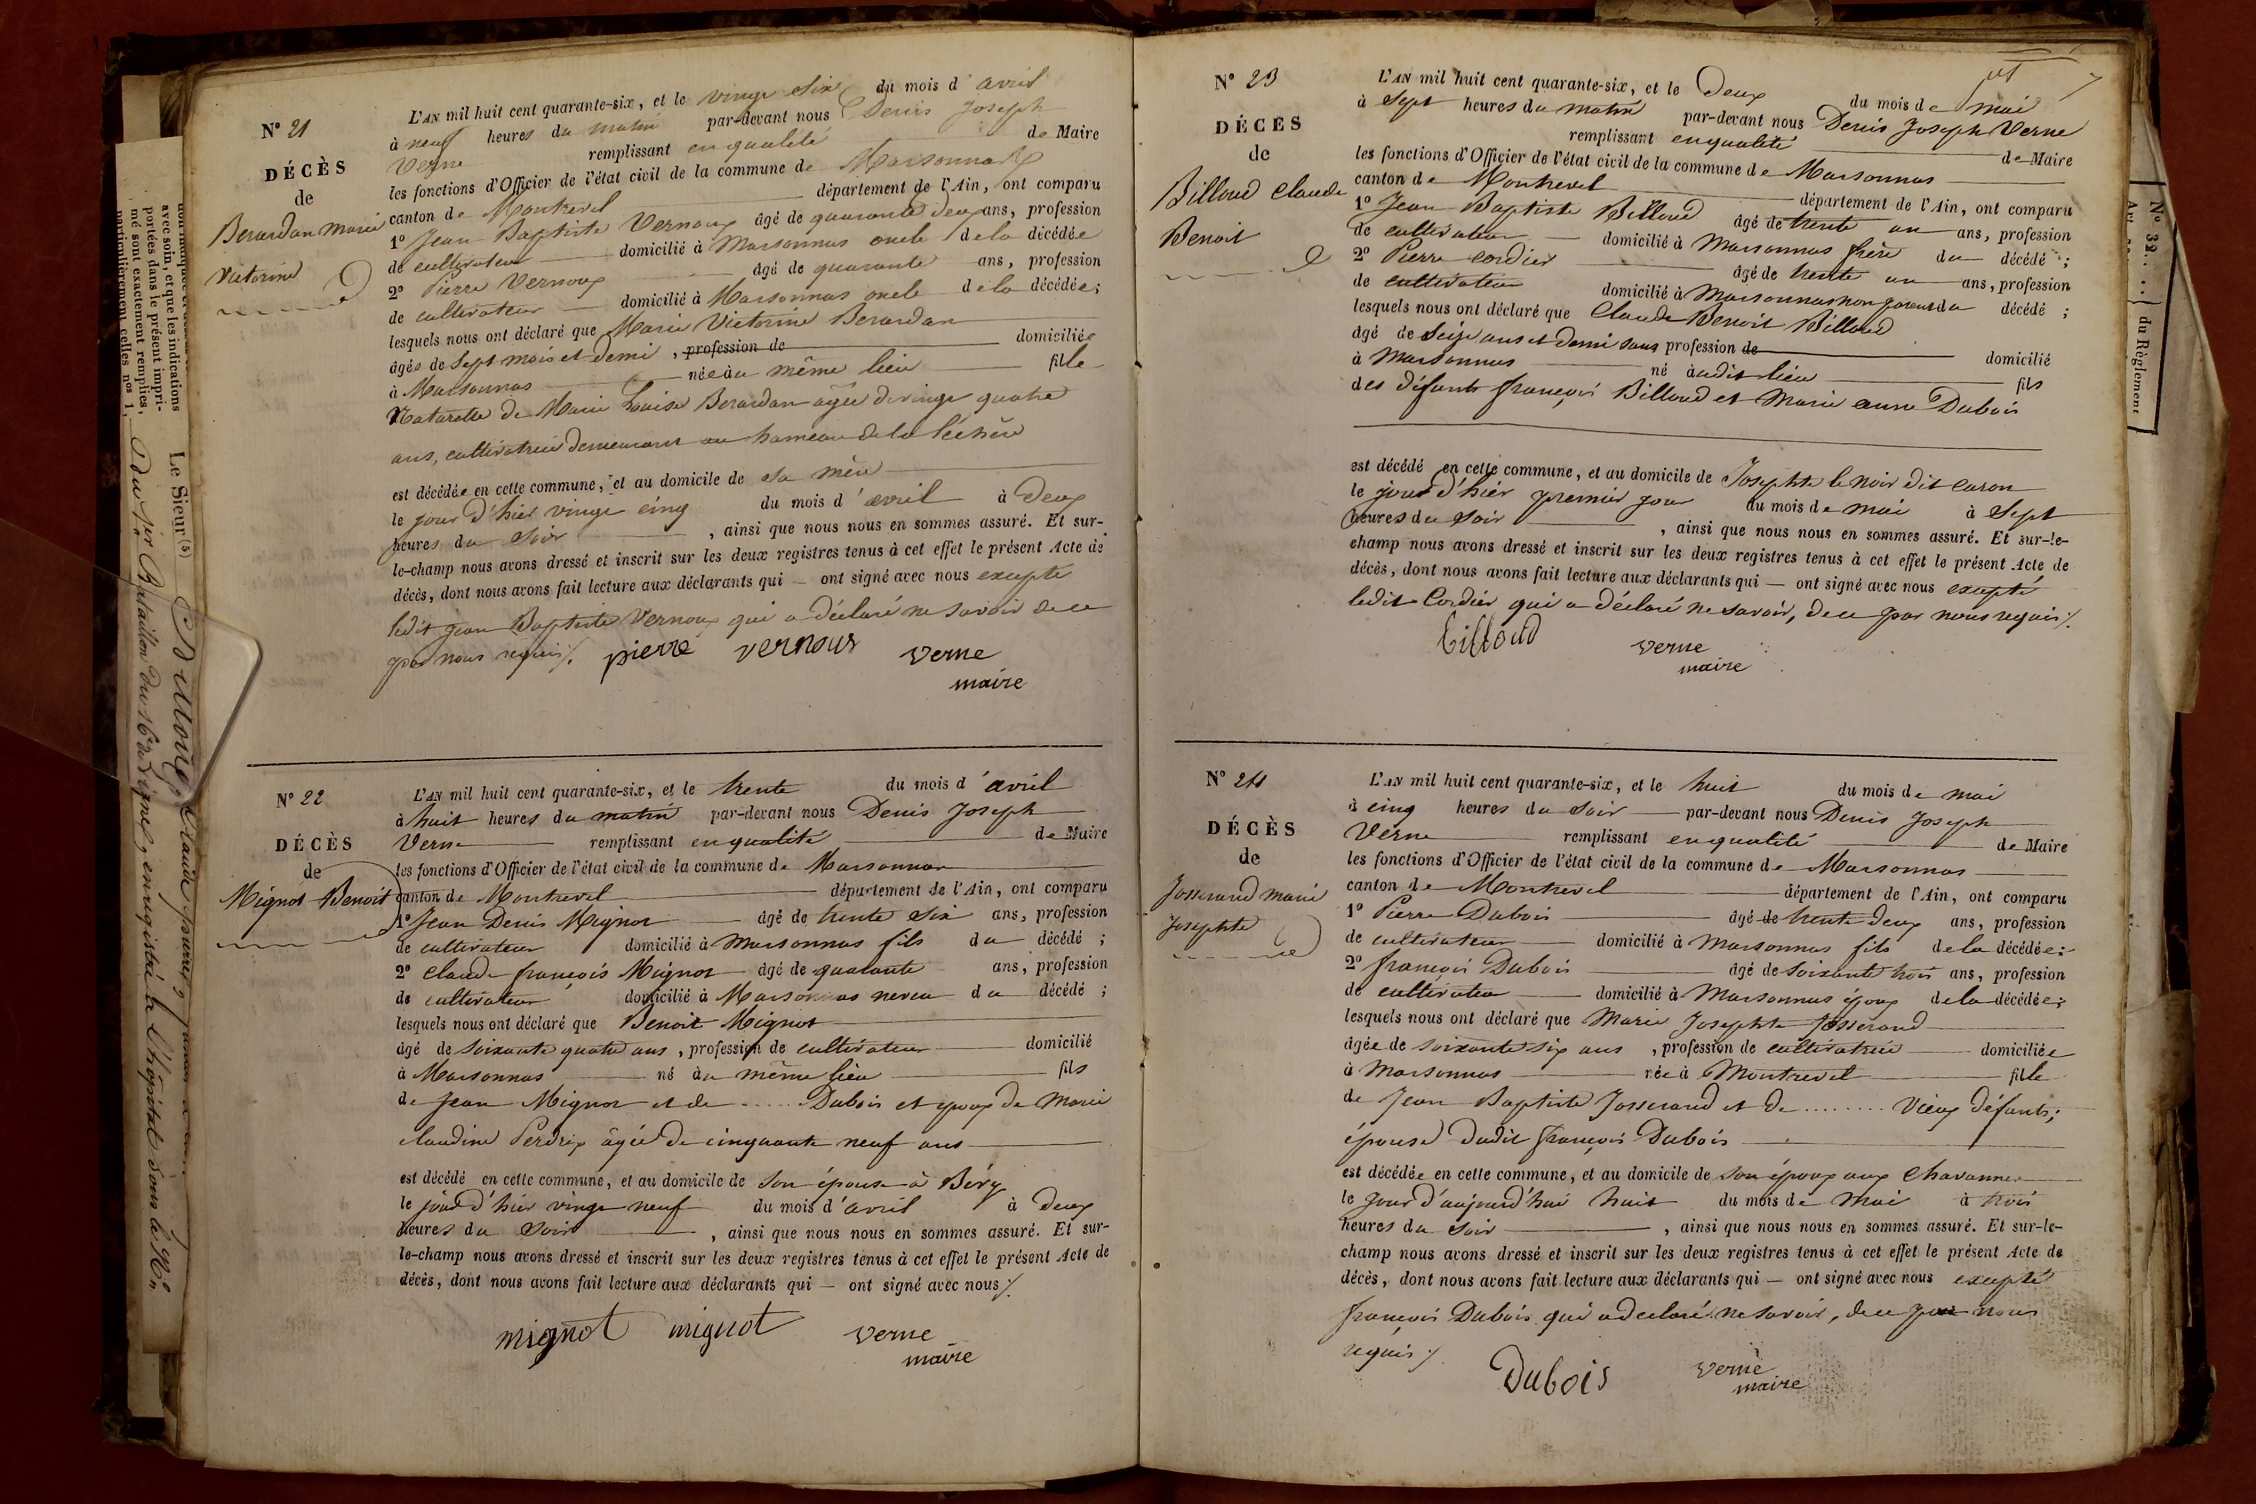 N° 21
DÉCÈS
de
Berardan Marie
Victorine
L'AN mil huit cent quarante-six, et le vingt six du mois d'avril
à neuf heures du matin par-devant nous Denis Joseph
Verne remplissant en qualité de Maire
les fonctions d'Officier de l'état civil de la commune de Marsonnas
canton de Montrevel département de l'Ain, ont comparu
1° Jean Baptiste Vernoux âgé de quarante deux ans, profession
de cultivateur domicilié à Marsonnas oncle de la décédée
2° Pierre Vernoux âgé de quarante ans, profession
de cultivateur domicilié à Marsonnas oncle de la décédée;
lesquels nous ont déclaré que Marie Victorine Berardan
âgée de sept mois et demi, profession de domiciliée
à Marsonnas née au même lieu fille
Naturelle de Marie Louise Berardan âgée de vingt quatre
ans, cultivatrice demeurant au hameau de la Léchère
est décédée en cette commune, et au domicile de sa mère
le jour d'hier vingt cinq du mois d'avril à deux
heures du soir, ainsi que nous nous en sommes assuré. Et sur-
le-champ nous avons dressé et inscrit sur les deux registres tenus à cet effet le présent Acte de
décès, dont nous avons fait lecture aux déclarants qui — ont signé avec nous excepté
ledit Jean Baptiste Vernoux qui a déclaré ne savoir de ce
par nous requis ⁒ pierre vernous verne
maire
N° 22
DÉCÈS
de
Mignot Benoit
L'AN mil huit cent quarante-six, et le trente du mois d'avril
à huit heures du matin par-devant nous Denis Joseph
Verne remplissant en qualité de Maire
les fonctions d'Officier de l'état civil de la commune de Marsonnas
canton de Montrevel département de l'Ain, ont comparu
1° Jean Denis Mignot âgé de trente six ans, profession
de cultivateur domicilié à Marsonnas fils du décédé;
2° Claude françois Mignot âgé de quarante ans, profession
de cultivateur domicilié à Marsonnas neveu du décédé;
lesquels nous ont déclaré que Benoit Mignot
âgé de soixante quatre ans, profession de cultivateur domicilié
à Marsonnas né au même lieu fils
de Jean Mignot et de ..... Dubois et époux de Marie
claudine Perdrix âgée de cinquante neuf ans
est décédé en cette commune, et au domicile de son épouse à Béry
le jour d'hier vingt neuf du mois d'avril à deux
heures du soir, ainsi que nous nous en sommes assuré. Et sur-
le-champ nous avons dressé et inscrit sur les deux registres tenus à cet effet le présent Acte de
décès, dont nous avons fait lecture aux déclarants qui — ont signé avec nous ⁒
mignot mignot verne
maire
N° 23
DÉCÈS
de
Billoud Claude
Benoit
L'AN mil huit cent quarante-six, et le Deux du mois de mai
à sept heures du matin par-devant nous Denis Joseph Verne
remplissant en qualité de Maire
les fonctions d'Officier de l'état civil de la commune de Marsonnas
canton de Montrevel département de l'Ain, ont comparu
1° Jean Baptiste Billoud âgé de trente un ans, profession
de cultivateur domicilié à Marsonnas frère du décédé;
2° Pierre Cordier âgé de trente un ans, profession
de cultivateur domicilié à Marsonnas non parent du décédé;
lesquels nous ont déclaré que Claude Benoit Billoud
âgé de seize ans et demi sans profession de domicilié
à Marsonnas né audit lieu fils
des défunts françois Billoud et Marie anne Dubois
est décédé en cette commune, et au domicile de Josephte le noir dit caron
le jour d'hier premier jour du mois de mai à sept
heures du soir, ainsi que nous nous en sommes assuré. Et sur-le-
champ nous avons dressé et inscrit sur les deux registres tenus à cet effet le présent Acte de
décès, dont nous avons fait lecture aux déclarants qui — ont signé avec nous excepté
ledit Cordier qui a déclaré ne savoir, de ce par nous requis ⁒
billoud verne
maire
N° 24
DÉCÈS
de
Josserand Marie
Josephte
L'AN mil huit cent quarante-six, et le huit du mois de mai
à cinq heures du soir par-devant nous Denis Joseph
Verne remplissant en qualité de Maire
les fonctions d'Officier de l'état civil de la commune de Marsonnas
canton de Montrevel département de l'Ain, ont comparu
1° Pierre Dubois âgé de trente deux ans, profession
de cultivateur domicilié à Marsonnas fils de la décédée;
2° françois Dubois âgé de soixante trois ans, profession
de cultivateur domicilié à Marsonnas époux de la décédée;
lesquels nous ont déclaré que Marie Josephte Josserand
âgée de soixante six ans, profession de cultivatrice domiciliée
à Marsonnas née à Montrevel fille
de Jean Baptiste Josserand et de ........ Vieux défunts;
épouse dudit françois Dubois
est décédée en cette commune, et au domicile de son époux aux Chavannes
le jour d'aujourd'hui huit du mois de mai à trois
heures du soir, ainsi que nous nous en sommes assuré. Et sur-le-
champ nous avons dressé et inscrit sur les deux registres tenus à cet effet le présent Acte de
décès, dont nous avons fait lecture aux déclarants qui — ont signé avec nous excepté
françois Dubois qui a déclaré ne savoir, de ce par nous
requis ⁒
Dubois verne
maire
avec soin, et que les indications
portées dans le présent impri-
mé sont exactement remplies,
particulièrement celles nos 1,
Le Sieur (5)
N° 32
du Règlement